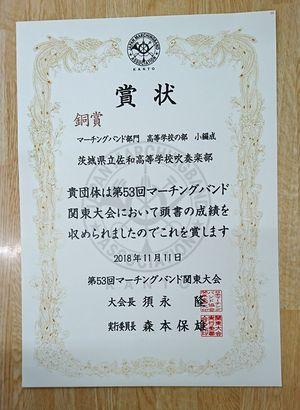 KANTO
賞状
銅賞
マーチングバンド部門 高等学校の部 小編成
茨城県立佐和高等学校吹奏楽部
貴団体は第53回マーチングバンド
関東大会において頭書の成績を
収められましたのでこれを賞します
2018年11月11日
第53回マーチングバンド関東大会
大会長 須永 隆
実行委員長 森本保雄